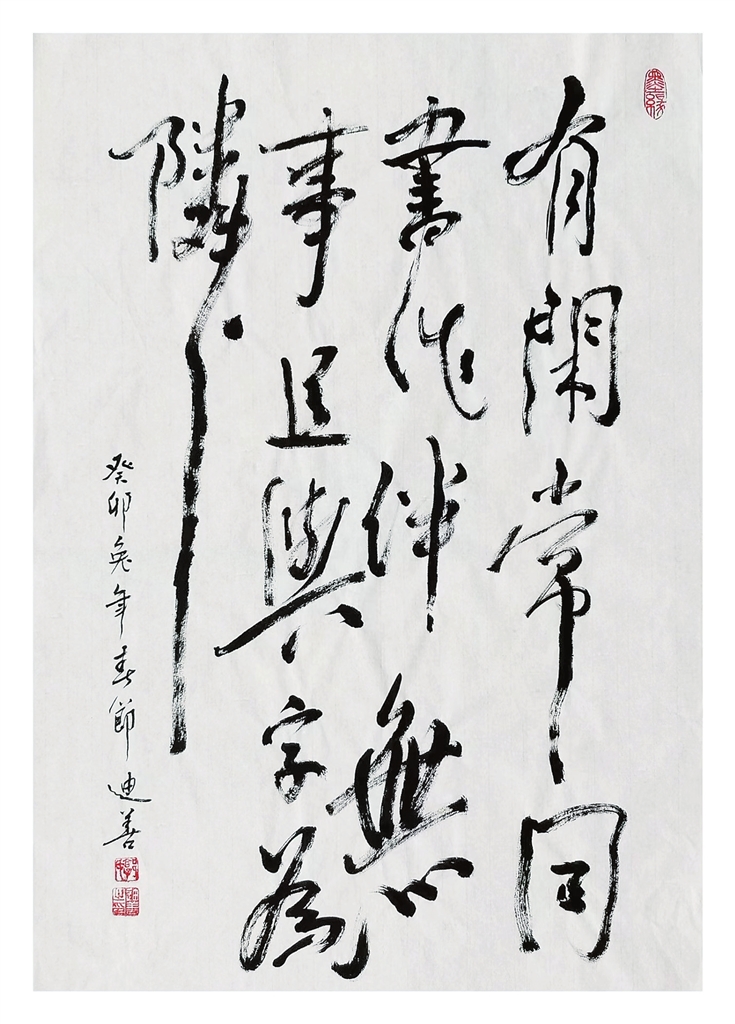 有閑常同
書作伴無
事且與字為
隣
癸卯兔年春節迪善